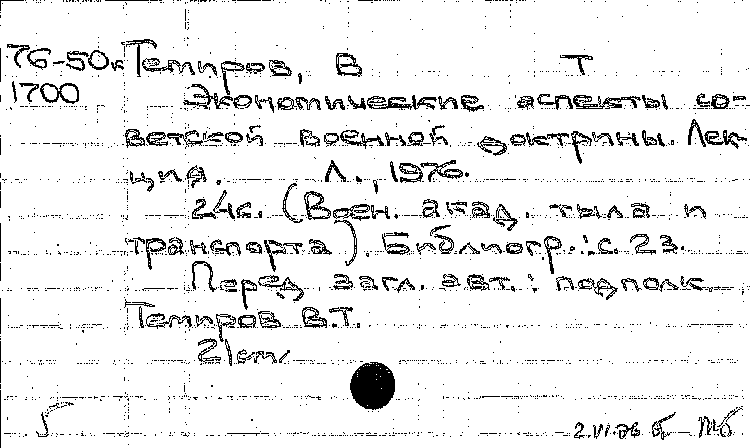 76-50к Темиров, В Т
1700
Экономические аспекты со-
ветской военной доктрины. Лек-
ция. Л., 1976.
24с. (Воен. акад. тыла и
транспорта). Библиогр.: с. 23.
Перед загл. авт.: подполк.
Темиров В.Т.
21см
2.VI.76